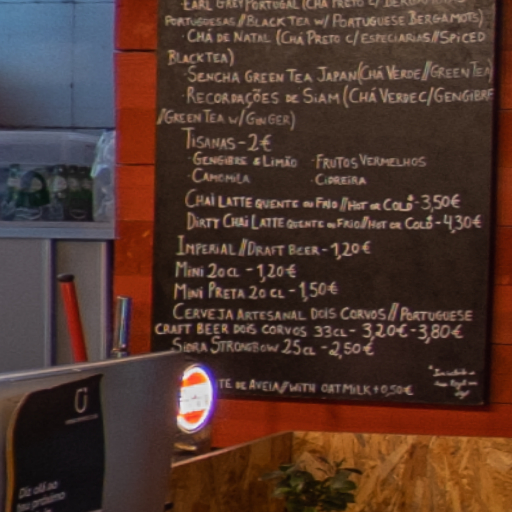 EARL GREY PORTUGAL (CHÁ PRETO C/
PORTUGUESAS//BLACK TEA W/ PORTUGUESE BERGAMOTS)
· CHÁ DE NATAL (CHÁ PRETO C/ESPECIARIAS//SPICED
BLACK TEA)
· SENCHA GREEN TEA JAPAN (CHÁ VERDE//GREEN TEA)
· RECORDAÇÕES DE SIAM (CHÁ VERDE C/GENGIBRE
//GREEN TEA W/GINGER)
TISANAS - 2€
· GENGIBRE & LIMÃO · FRUTOS VERMELHOS
· CAMOMILA · CIDREIRA
CHAI LATTE QUENTE OU FRIO//HOT OR COLD - 3,50€
DIRTY CHAI LATTE QUENTE OU FRIO//HOT OR COLD - 4,30€
IMPERIAL//DRAFT BEER - 1,20€
MINI 20CL - 1,20€
MINI PRETA 20CL - 1,50€
CERVEJA ARTESANAL DOIS CORVOS // PORTUGUESE
CRAFT BEER DOIS CORVOS 33CL - 3,20€ - 3,80€
SIDRA STRONGBOW 25CL - 2,50€
TE DE AVEIA//WITH OAT MILK + 0,50€
Diz olá ao
teu próximo